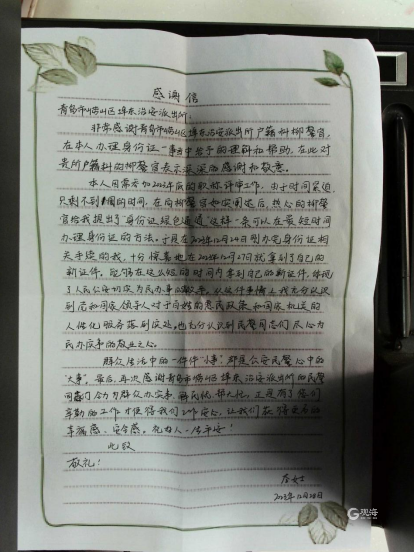 感谢信
青岛市崂山区埠东治安派出所:
非常感谢青岛市崂山区埠东治安派出所户籍科柳警官,
在本人办理身份证一事中给予的理解和帮助,在此对
贵所户籍科的柳警官表示深深的感谢和敬意。
本人因需参加2023年底的职称评审工作,由于时间紧迫
只剩不到周的时间,在柳警官如实阐述后,热心的柳警
官给我提出了身份证绿色通道"这样一条可以在最短时间
办理身份证的方法。于是在2023年12月24日到办完身份证相
关手续的我,十分惊喜地在2023年12月27日就拿到了自己的
新证件。能够在这么短的时间内拿到自己的新证件,体现
了人民公安切实为民办事的,从这件事情上我充分认识
到党和国家领导人对于百姓的惠民政策和国家机关的
人性化服务落到实处,也充分认识到民警同志们尽心为
民办实事的敬业之心。
群众生活中的一件件"小事",都是公安民警心中的
"大事"。最后,再次感谢青岛市崂山区埠东治安派出所的民警
同志们合力为群众办实事,解民忧,帮大忙,正是有了你们
辛勤的工作才使得我们工作安心,让我们获得更多的
幸福感、安全感。祝好人一生平安!
此致
敬礼!
女士
2023年12月28日
观海